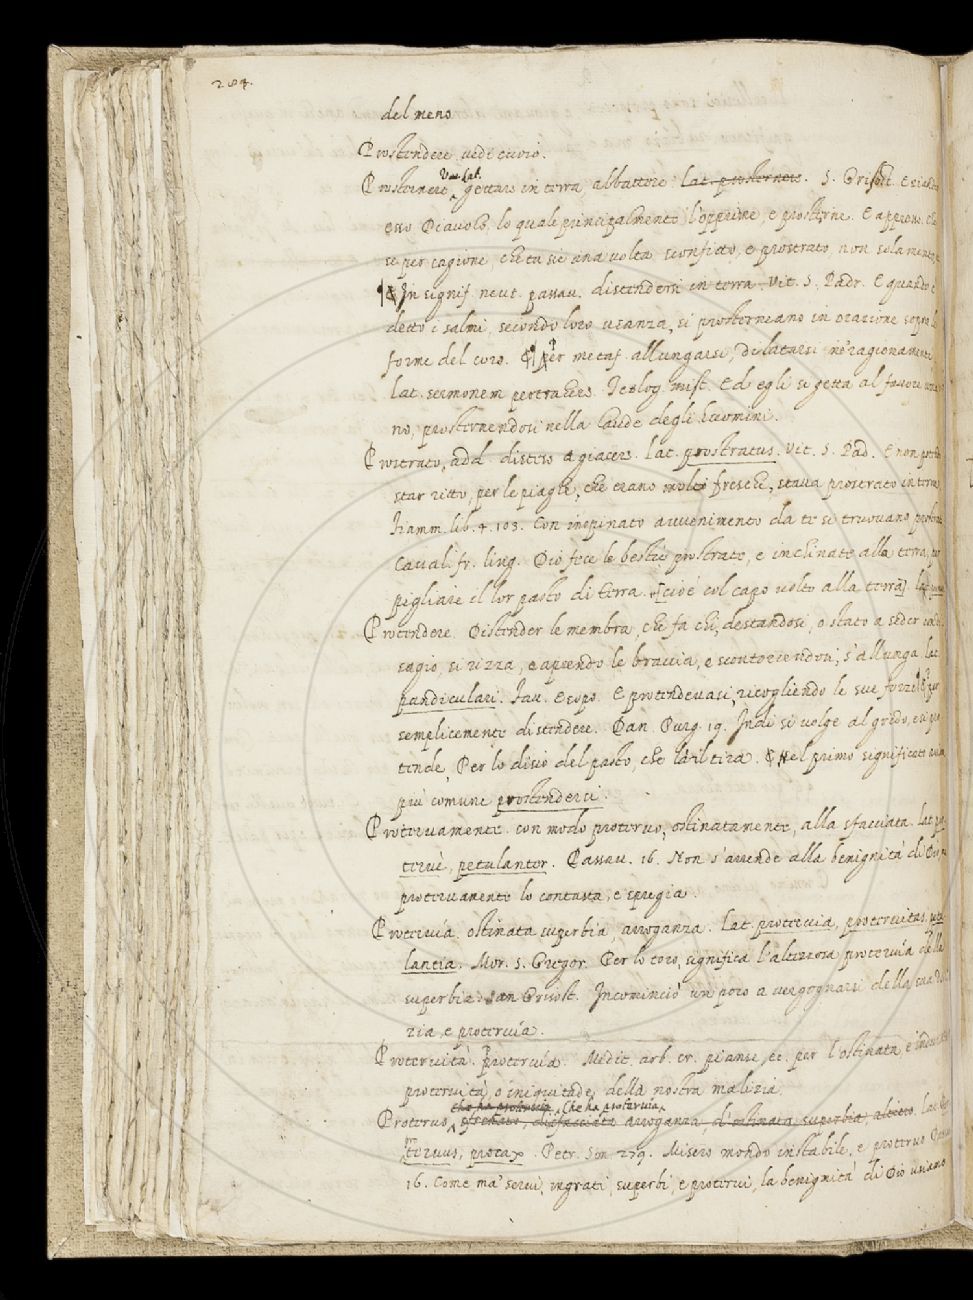 284.
del neno
Prostendere vedi cuoio.
Voc. Lat.
Prosternere, gettare in terra, abbattere. Lat. prosternere. S. Grisost. E
esso Diavolo, lo quale principalmente l'opprime, e prosterne. E appreno.
se per cagione, che tu sie una volta sconfitto, e prostrato, non solamente
In signif. neut. passau. distendersi in terra. Vit. S. Padr. E quando
detto i salmi, secondo loro usanza, si prosterneano in orazione sopra le
forme del coro. per metaf. allungarsi, dilatarsi ne' ragionamenti
Lat. sermonem pertrahere. Teolog. mist. Ed egli si getta al favore
no, prosternendosi nella laude degli huomini.
Prostrato, add. disteso a giacere. Lat. prostratus. Vit. S. Pad. E non
star ritto, per le piaghe, che erano molto fresche, stava prostrato in terra
Fiamm. lib. 4. 103. Con inopinato avvenimento da te si truovano
Caval. fr. ling. Dio fece le bestie prostrate, e inchinate alla terra, per
pigliare il lor pasto di terra. [cioè col capo volto alla terra]
Protendere. Distender le membra, che fa chi, destandosi, o stato a seder
sagio, si rizza, e aprendo le braccia, e scontorcendosi, s'allunga. Lat.
pandiculari. Fav. Esopo. E protendevasi, ricogliendo le sue forze.
semplicemente distendere. Dan. Purg. 19. Indi si volge al grido, e si pro
tende, Per lo disio del pasto, che là il tira. Nel primo significato
più comune prostenderci.
Protervamente. con modo protervo, ostinatamente, alla sfacciata. Lat. pro
tervè, petulanter. Passav. 16. Non s'arrende alla benignità di Dio,
protervamente lo contasta, e spregia.
Protervia. ostinata superbia, arroganza. Lat. protervia, protervitas, petu
lantia. Mor. S. Gregor. Per lo toro, significa l'altezzosa protervia della
superbia. San Grisost. Incominciò un poco a vergognarsi della sua
zia, e protervia.
Protervità. Protervia. Medit. arb. cr. pianse, ec. per l'ostinata, e
protervità, o iniquitade, della nostra malizia.
che ha protervia, Che ha protervia.
Protervo, sfrenato, di sfacciata arroganza, d'ostinata superbia, altiero. Lat.
tervus, procax. Petr. Son. 279. Misero mondo instabile, e protervo
16. Come ma' servi, ingrati, superbi, e protervi, la benignità di Dio usiamo